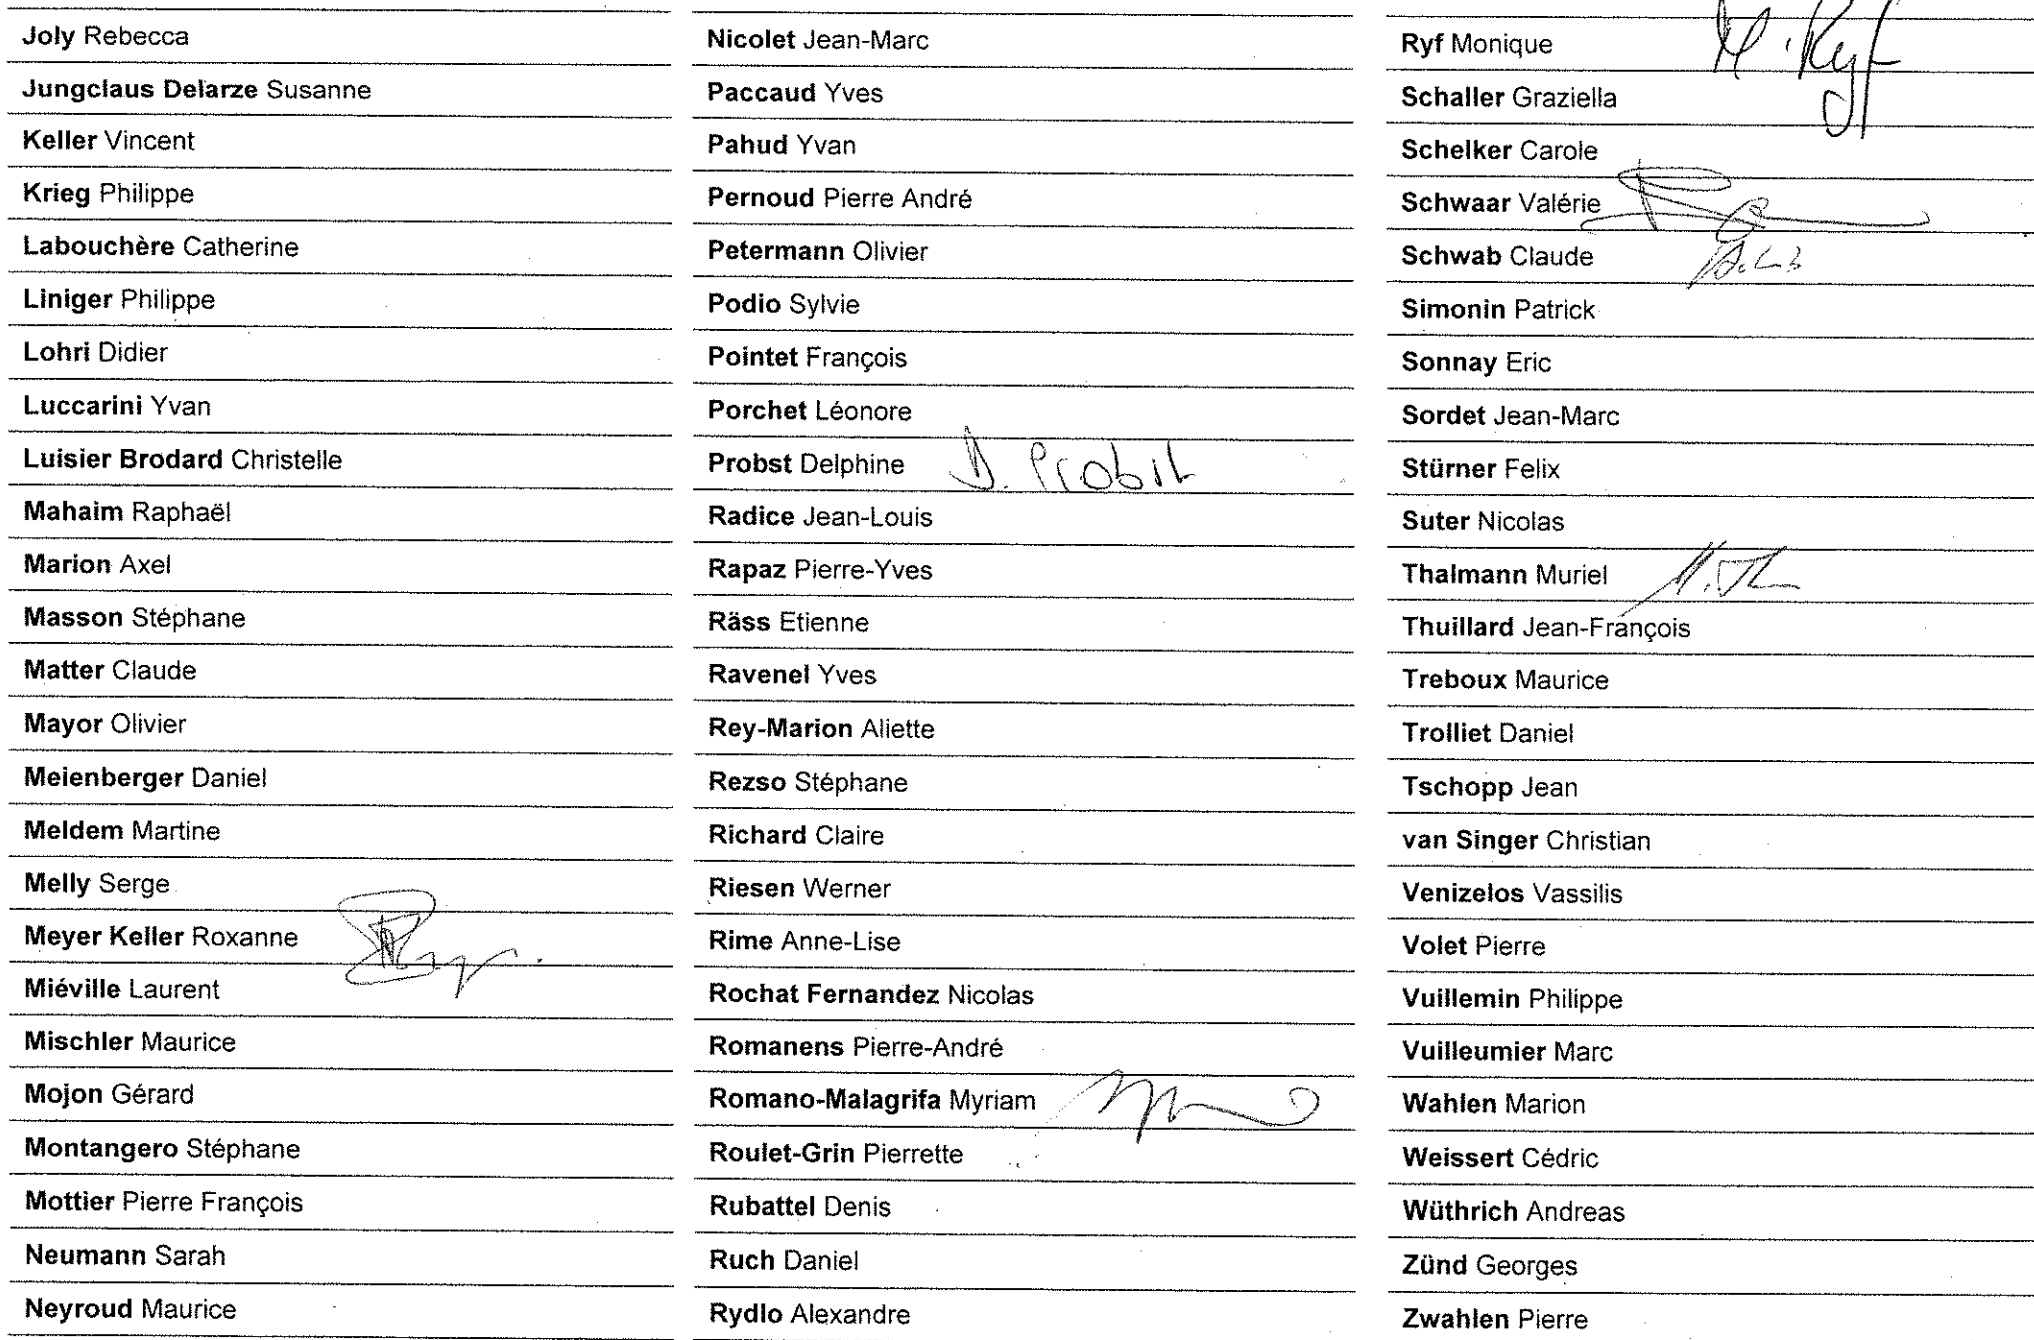 Joly Rebecca
Jungclaus Delarze Susanne
Keller Vincent
Krieg Philippe
Labouchère Catherine
Liniger Philippe
Lohri Didier
Luccarini Yvan
Luisier Brodard Christelle
Mahaim Raphaël
Marion Axel
Masson Stéphane
Matter Claude
Mayor Olivier
Meienberger Daniel
Meldem Martine
Melly Serge
Meyer Keller Roxanne
Miéville Laurent
Mischler Maurice
Mojon Gérard
Montangero Stéphane
Mottier Pierre François
Neumann Sarah
Neyroud Maurice
Nicolet Jean-Marc
Paccaud Yves
Pahud Yvan
Pernoud Pierre André
Petermann Olivier
Podio Sylvie
Pointet François
Porchet Léonore
Probst Delphine D. Probst
Radice Jean-Louis
Rapaz Pierre-Yves
Räss Etienne
Ravenel Yves
Rey-Marion Aliette
Rezso Stéphane
Richard Claire
Riesen Werner
Rime Anne-Lise
Rochat Fernandez Nicolas
Romanens Pierre-André
Romano-Malagrifa Myriam
Roulet-Grin Pierrette
Rubattel Denis
Ruch Daniel
Rydlo Alexandre
Ryf Monique M. Ryf
Schaller Graziella
Schelker Carole
Schwaar Valérie
Schwab Claude
Simonin Patrick
Sonnay Eric
Sordet Jean-Marc
Stürner Felix
Suter Nicolas
Thalmann Muriel
Thuillard Jean-François
Treboux Maurice
Trolliet Daniel
Tschopp Jean
van Singer Christian
Venizelos Vassilis
Volet Pierre
Vuillemin Philippe
Vuilleumier Marc
Wahlen Marion
Weissert Cédric
Wüthrich Andreas
Zünd Georges
Zwahlen Pierre